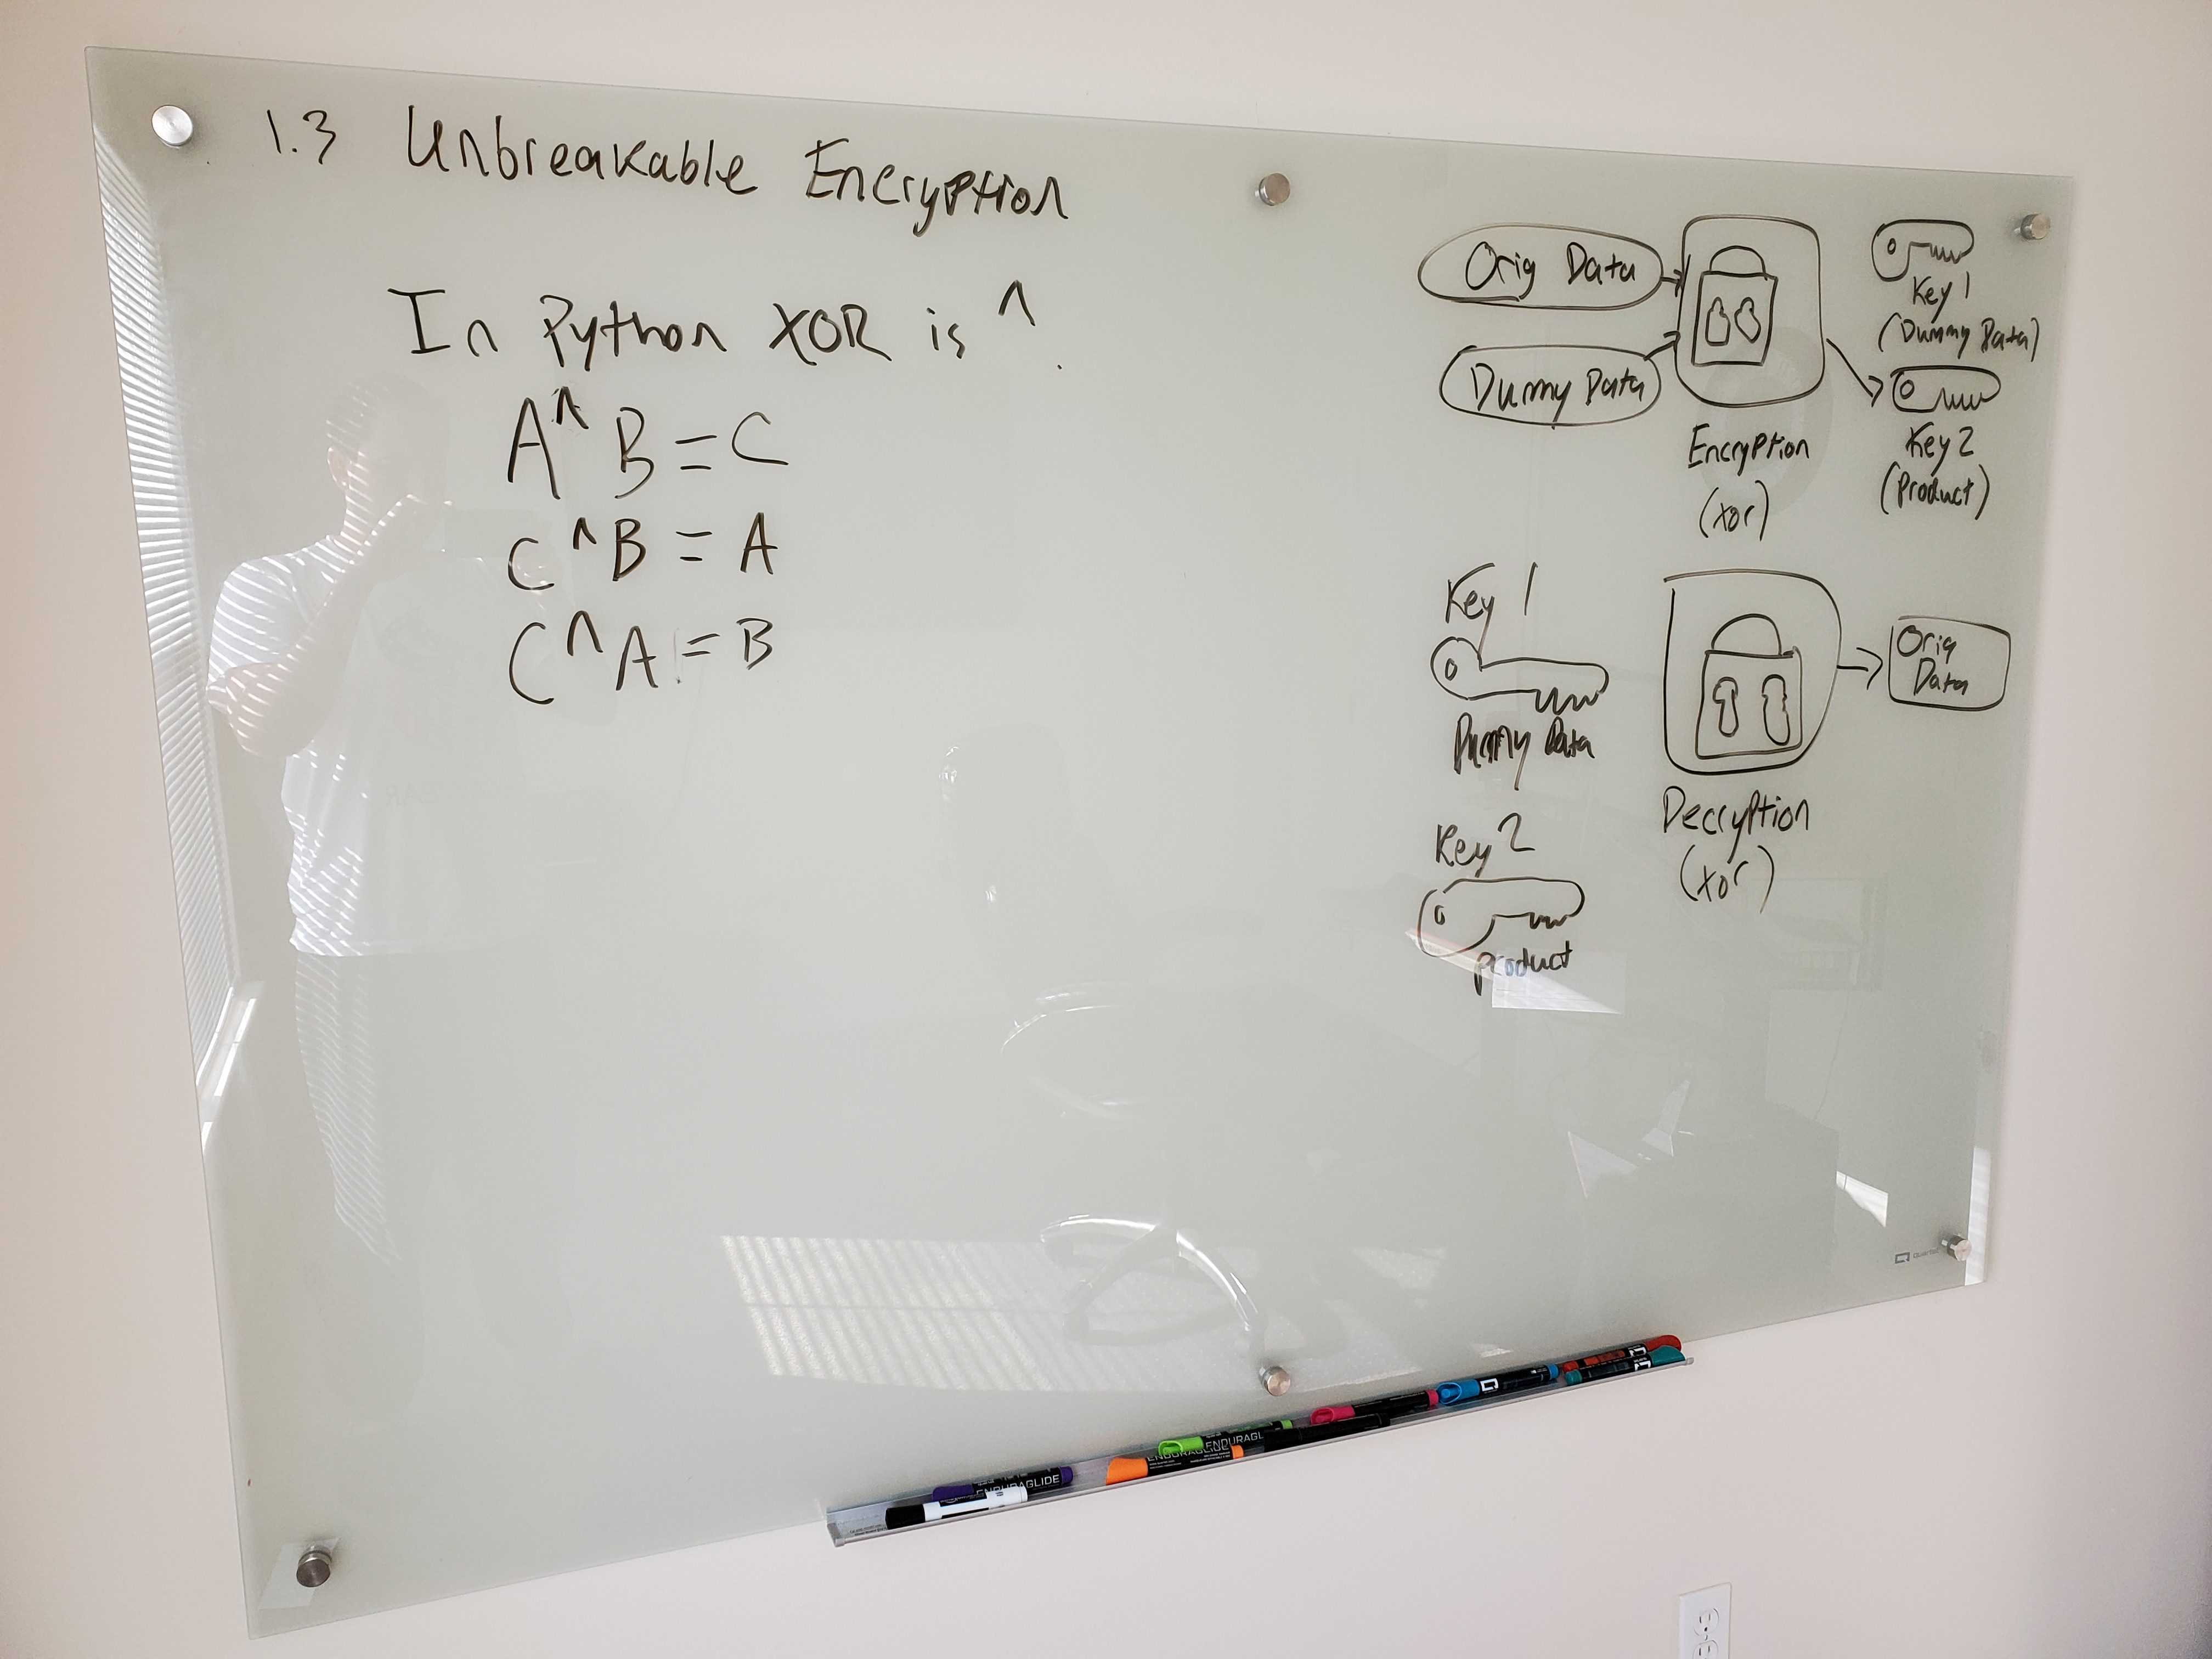 1.3 Unbreakable Encryption
In Python XOR is ^.
A ^ B = C
C ^ B = A
C ^ A = B
Orig Data
Dummy Data
Encryption
(xor)
Key 1
(Dummy Data)
Key 2
(Product)
Key 1
Dummy Data
Key 2
product
Decryption
(xor)
Orig
Data
Quartet
ENDURAGLIDE
ENDURAGLIDE
ENDURAGL